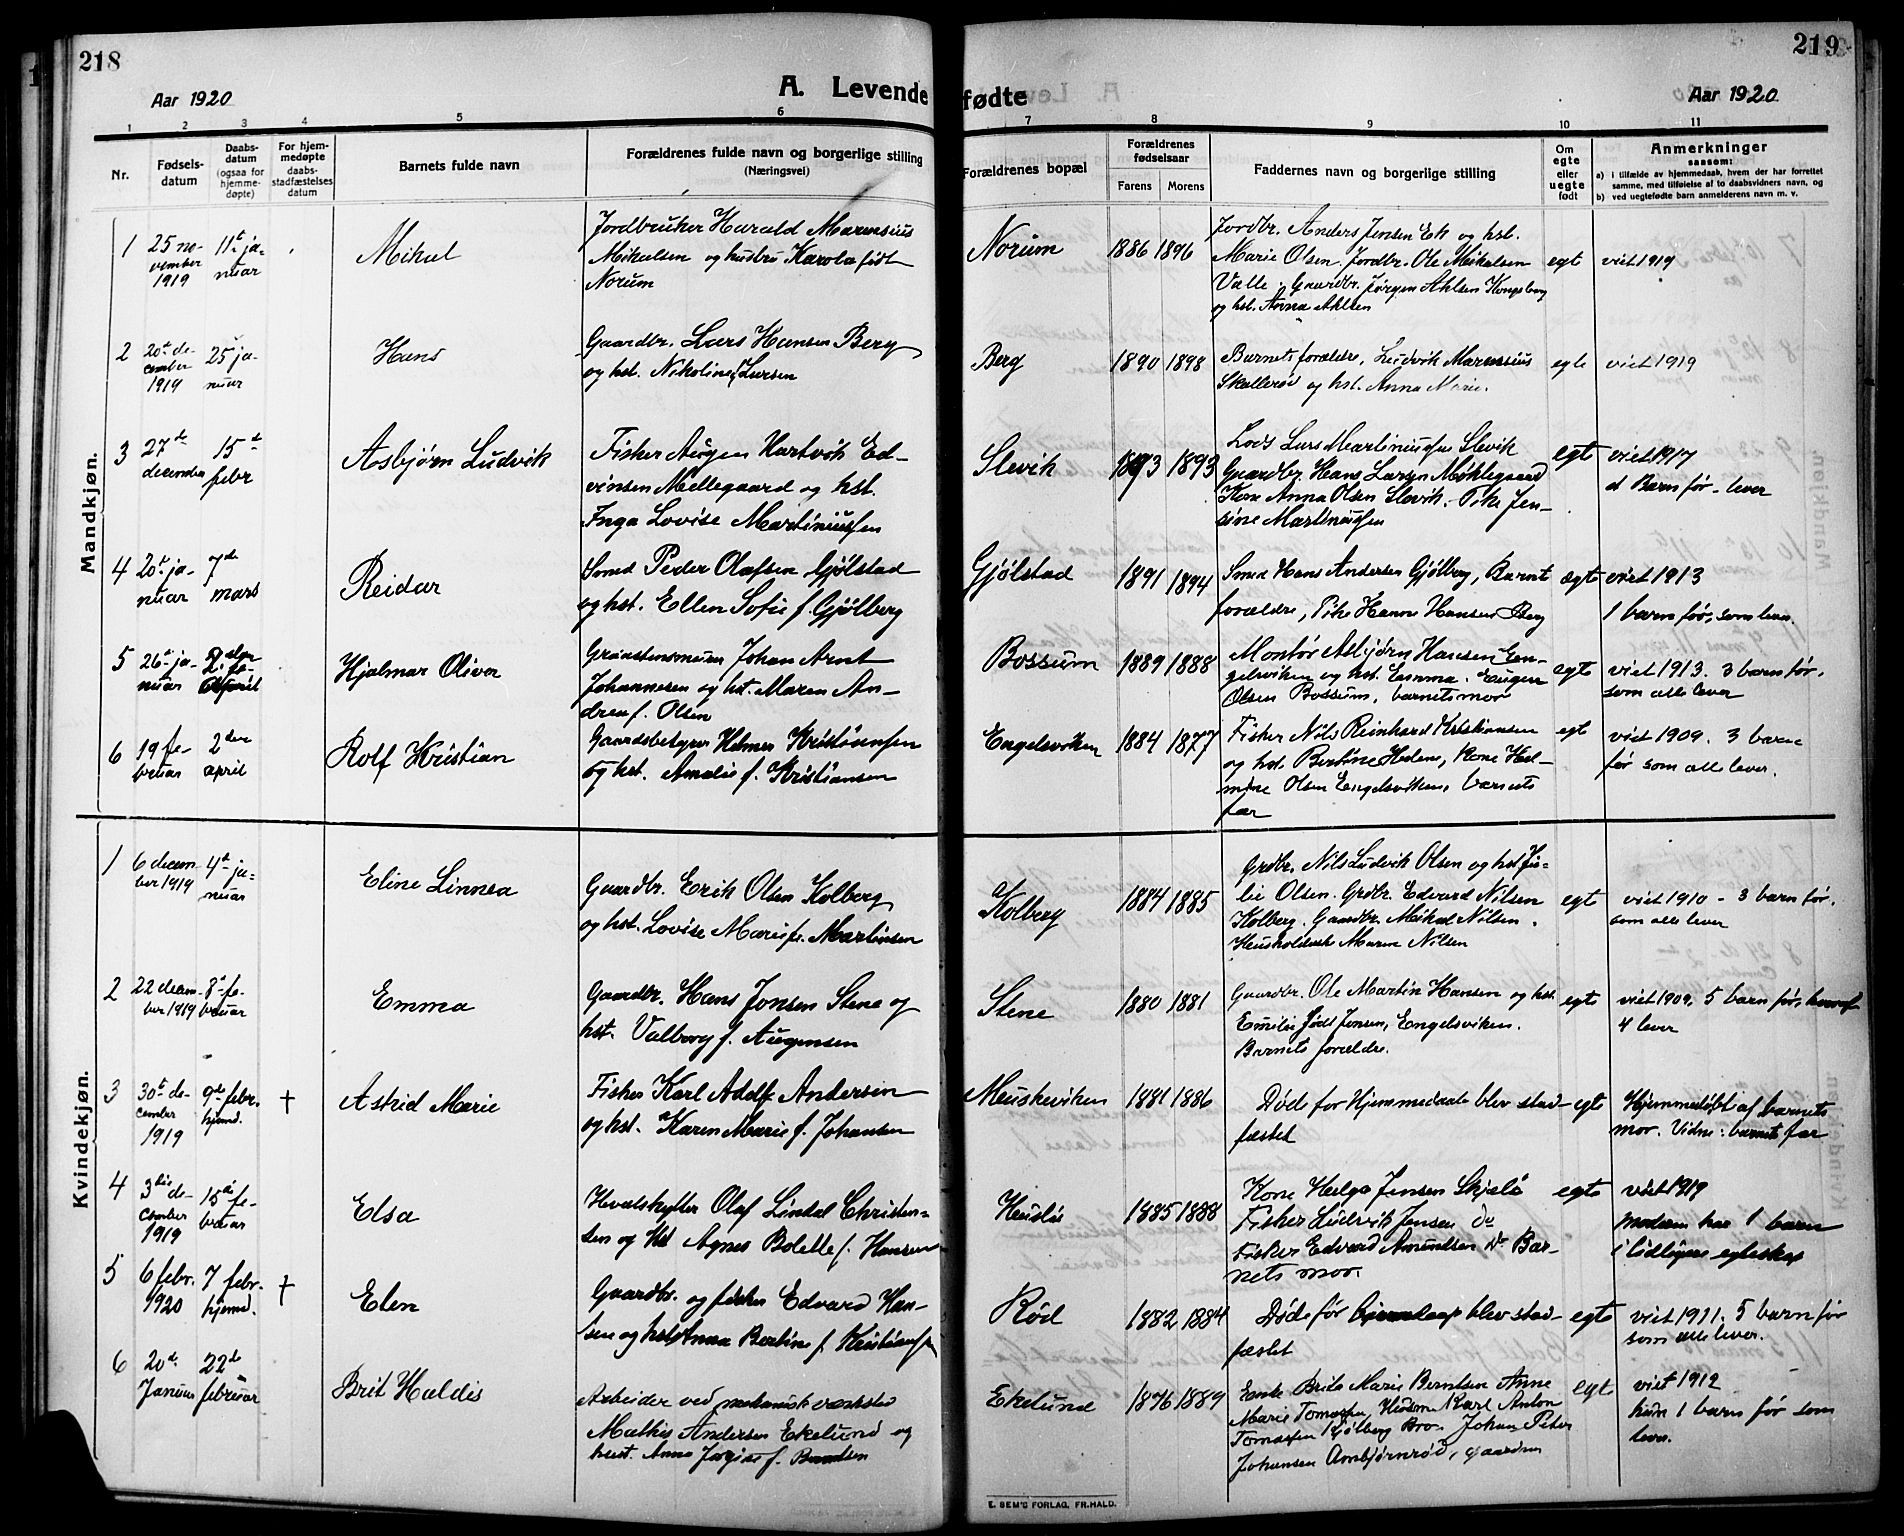 218
219
Aar 1920
A. Levende fødte
Aar 1920
1 2 3 4 5 6 7 8 9 10 11
Nr.
Fødsels-
datum
Daabs-
datum
(ogsaa for
hjemme-
døpte)
For hjem-
medøpte
daabs-
stadfæstelses
datum
Barnets fulde navn
Forældrenes fulde navn og borgerlige stilling
(Næringsvei)
Forældrenes bopæl
Forældrenes
fødselsaar
Farens Morens
Faddernes navn og borgerlige stilling
Om
egte
eller
uegte
født
Anmerkninger
sansom:
a) i tilfælde av hjemmedaab, hvem der har forrettet
samme, med tilføielse af to daabsvidners navn, og
b) ved uegtefødte barn anmelderens navn m. v.
Mandkjøn.
1
25 no-
vember
1919
11te ja-
nuar
Mikal
Jordbruker Harald Marensius
Mikalsen og hustru Karola født
Norum
Norum
1886 1896
Jordbr. Anders Jensen Ek og hst.
Marie Olsen. Jordbr. Ole Mikalsen
Valle. Gaardbr. Jørgen Ahlsen Kongsberg
og hst. Anna Ahlsen
egt
viet 1919
2
20de de-
cember
1919
25 ja-
nuar
Hans
Gaardbr. Lars Hansen Berg
og hst. Nikoline f. Larsen
Berg
1890 1898
Barnets forældre, Ludvik Marensius
Skallerød og hst. Anna Marie.
egte
viet 1919
3
27de
december
15de
febr
Asbjørn Ludvik
Fisker Augen Hartvik Ed-
vinsen Mellegaard og hst.
Inga Lovise Martiniussen
Slevik
1893 1893
Lods Lars Martiniussen Slevik
Gaardbr. Hans Larsen Miklegaard
Kone Anna Olsen Slevik. Pike Jen-
sine Martiniussen
egt
viet 1917
et Barn før - lever
4
20de ja-
nuar
7de
mars
Reidar
Smed Peder Olafsen Gjølstad
og hst. Ellen Sofie f. Gjølberg
Gjølstad
1891 1894
Smed Hans Andersen Gjølberg, Barnets
forældre, Pike Hanna Hansen Berg
ægte
viet 1913
1 barn før, som lever.
5
26de ja-
nuar
2den
april
Hjalmar Oliver
Graastensmurer Johan Arnt
Johannesen og hst. Maren An-
drea f. Olsen
Bossum
1889 1888
Montør Asbjørn Hansen En-
gelsviken og hst. Emma. Eugen
Olsen Bossum, barnets mor
egte
viet 1913. 3 barn før,
som alle lever
6
19 fe-
bruar
2den
april
Rolf Kristian
Gaardsbestyrer Helmer Kristiansen
og hst. Amalie f. Kristiansen
Engelsviken
1884 1877
Fisker Nils Reinhard Kristiansen
og hst. Bertine Helene, Kone Hel-
mine Olsen Engelsviken, barnets
far
egt
viet 1909. 3 barn
før som alle lever.
Kvindekjøn.
1
6 decem-
ber 1919
4de ja-
nuar
Eline Linnea
Gaardbr. Erik Olsen Kolberg
og hst. Lovise Marie f. Martinsen
Kolberg
1884 1885
Grdbr. Nils Ludvik Olsen og hst Ju-
lie Olsen. Grdbr. Edvard Nilsen
Kolberg. Gaardbr. Mikal Nilsen.
Husholdersk Maren Nilsen
egt
viet 1910 - 3 barn før.
som alle lever
2
22 decem-
ber 1919
8de fe-
bruar
Emma
Gaardbr. Hans Jonsen Stene og
hst. Valborg f. Augensen
Stene
1880 1881
Gaardbr. Ole Martin Hansen og hst.
Emilie født Jensen, Engelsviken.
Barnets forældre.
egte
viet 1909. 5 barn før, hvoraf
4 lever
3
30te de-
cember
1919
9de febr.
hjemd.
†
Astrid Marie
Fisker Karl Adolf Andersen
og hst. Karen Marie f. Johansen
Meuskeviken
1881 1886
Døde før Hjemmedaab blev stad-
fæstet
egte
Hjemmedøbt af barnets
mor. Vidne: barnets far
4
3die de-
cember
1919
15de fe-
bruar
Elsa
Hvalskytter Olaf Lindal Christen-
sen og hst Agnes Bolette f. Hansen
Husløs
1885 1888
Kone Helga Jensen Skjelø
Fisker Ludvik Jensen do
Fisker Edvard Amundsen do Bar-
nets mor.
egte
viet 1919
moderen har 1 barn
i tidligere egteskap
5
6 febr.
1920
7 febr.
hjemd.
†
Elen
Gaardbr. og fisker Edvard Han-
sen og hst Anna Bertine f. Kristiansen
Rød
1882 1884
Døde før hjemdaap blev stad-
fæstet
egte
viet 1911. 5 barn før
som alle lever.
6
20de
Januar
22de
februar
Brit Haldis
Arbeider ved mekanisk værksted
Mathis Andersen Ekelund og
hust. Anna f. Berntsen
Ekelund
1876 1889
Enke Brita Marie Berntsen Anne
Marie Tomassen, Husm. Karl Anton
Tomassen Kjølberg Bro. Johan Peter
Johansen Ambjørnrød, gaardm
egt
viet 1912
kun 1 barn før som
lever.
E. SEM'S FORLAG, FR.HALD.